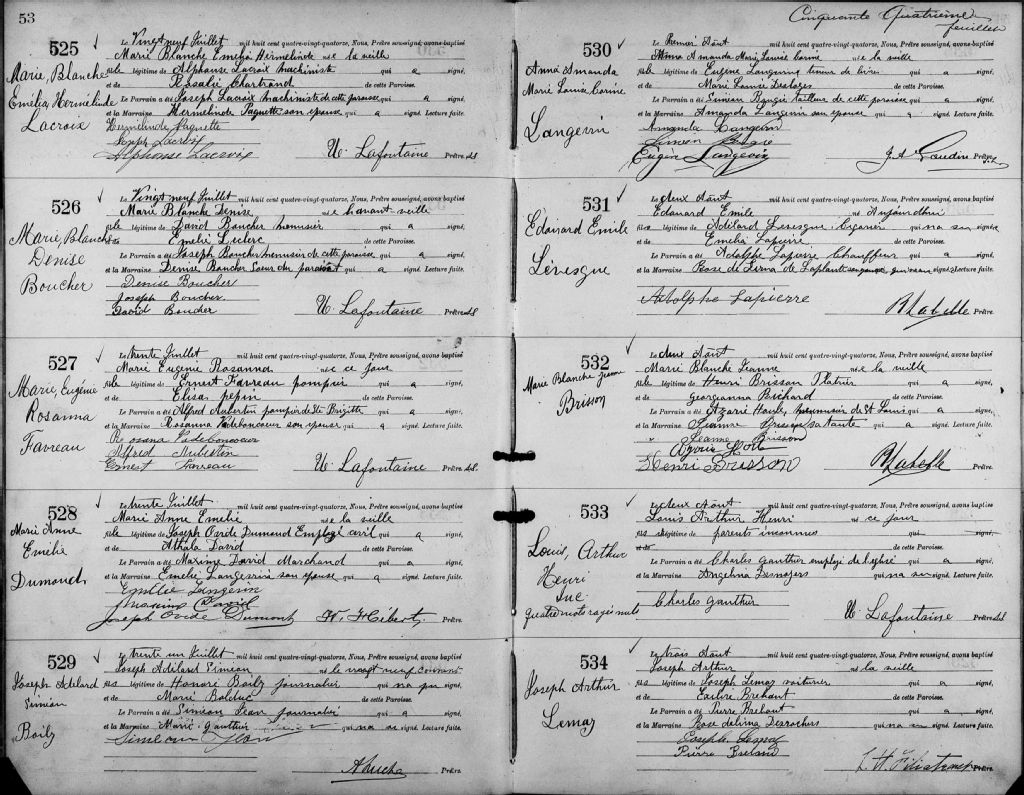 53
525
Marie, Blanche
Emélia, Hermelinde
Lacroix
Le Vingt neuf Juillet mil huit cent quatre-vingt-quatorze, Nous, Prêtre soussigné, avons baptisé
Marie Blanche Emélia Hermelinde née la veille
fille légitime de Alphonse Lacroix machiniste qui a signé,
et de Rosalie Chartrand de cette Paroisse.
Le Parrain a été Joseph Lacroix machiniste de cette paroisse qui a signé,
et la Marraine Hermelinde Paquette son épouse qui a signé. Lecture faite.
Hermelinde Paquette
Joseph Lacroix
Alphonse Lacroix U. Lafontaine Prêtre.
526
Marie, Blanche
Denise
Boucher
Le Vingt neuf Juillet mil huit cent quatre-vingt-quatorze, Nous, Prêtre soussigné, avons baptisé
Marie Blanche Denise née l'avant veille
fille légitime de David Boucher menuisier qui a signé,
et de Emélie Leclerc de cette Paroisse.
Le Parrain a été Joseph Boucher menuisier de cette paroisse qui a signé,
et la Marraine Denise Boucher Soeur du parrain qui a signé. Lecture faite.
Denise Boucher
Joseph Boucher.
David Boucher U. Lafontaine Prêtre
527
Marie, Eugénie
Rosanna
Favreau
Le trente Juillet mil huit cent quatre-vingt-quatorze, Nous, Prêtre soussigné, avons baptisé
Marie Eugénie Rosanna née ce jour
fille légitime de Ernest Favreau pompier qui a signé,
et de Elisa pepin de cette Paroisse.
Le Parrain a été Alfred Aubertin pompier de Ste Brigitte qui a signé,
et la Marraine Rosanna Vadeboncoeur son épouse qui a signé. Lecture faite.
Rosana Vadeboncoeur
Alfred Aubertin
Ernest Favreau U. Lafontaine Prêtre.
528
Marie Anne
Emélie
Dumond
Le trente Juillet mil huit cent quatre-vingt-quatorze, Nous, Prêtre soussigné, avons baptisé
Marie Anne Emélie née la veille
fille légitime de Joseph Ovide Dumond Employé civil qui a signé,
et de Athala David de cette Paroisse.
Le Parrain a été Maxime David Marchand qui a signé,
et la Marraine Emélie Langevin son épouse qui a signé. Lecture faite.
Emélie Langevin
Maxime David
Joseph Ovide Dumont H. Hébert, Prêtre.
529
Joseph Adélard
Siméon
Boily
Le trente un Juillet mil huit cent quatre-vingt-quatorze, Nous, Prêtre soussigné, avons baptisé
Joseph Adélard Siméon né le vingt-neuf courant
fils légitime de Honoré Boily journalier qui n'a pu signé,
et de Marie Bolduc de cette Paroisse.
Le Parrain a été Siméon Jean journalier qui a signé,
et la Marraine Marie Gauthier qui n'a su signé. Lecture faite.
Siméon Jean
Prêtre.
Cinquante Quatrième
feuillet
530
Anna Amanda
Marie Louise Corine
Langevin
Le Premier Août mil huit cent quatre-vingt-quatorze, Nous, Prêtre soussigné, avons baptisé
Anna Amanda Marie Louise Corine née la veille
fille légitime de Eugène Langevin teneur de livres qui a signé,
et de Marie Louise de cette Paroisse.
Le Parrain a été Siméon tailleur de cette paroisse qui a signé,
et la Marraine Amanda Langevin son épouse qui a signé. Lecture faite.
Amanda Langevin
Eugène Langevin J. A. Gaudin Prêtre.
531
Edouard Emile
Lévesque
Le deux Août mil huit cent quatre-vingt-quatorze, Nous, Prêtre soussigné, avons baptisé
Edouard Emile né Aujourdhui
fils légitime de Adélard Levesque qui n'a su signé
et de Emélia Lapierre de cette Paroisse.
Le Parrain a été Adolphe Lapierre Chauffeur qui a signé,
et la Marraine Rose de Lima de Laplante signé. Lecture faite.
Adolphe Lapierre
Prêtre.
532
Marie Blanche Jeanne
Brisson
Le deux Août mil huit cent quatre-vingt-quatorze, Nous, Prêtre soussigné, avons baptisé
Marie Blanche Jeanne née la veille
fille légitime de Henri Brisson Platrier qui a signé,
et de Georgianna Prichard de cette Paroisse.
Le Parrain a été Azarie menuisier de St Louis qui a signé,
et la Marraine Jeanne Brisson sa tante qui a signé. Lecture faite.
Jeanne Brisson
Henri Brisson Prêtre.
533
Louis, Arthur
Henri
Luc
Quatre mots rayés nuls
Le deux Août mil huit cent quatre-vingt-quatorze, Nous, Prêtre soussigné, avons baptisé
Louis Arthur Henri né ce jour
fils légitime de parents inconnus qui signé,
et de
Charles Gauthier employé de l'église qui a signé,
et la Marraine Angelina Desnoyers qui n'a su signé. Lecture faite.
Charles Gauthier
U. Lafontaine Prêtre
534
Joseph Arthur
Lemay
Le trois Août mil huit cent quatre-vingt-quatorze, Nous, Prêtre soussigné, avons baptisé
Joseph Arthur né la veille
fils légitime de Joseph Lemay voiturier qui a signé,
et de Brehaut de cette Paroisse.
Le Parrain a été Pierre Brehaut qui a signé,
et la Marraine Rose délima Desrochers qui n'a su signé. Lecture faite.
Joseph Lemay
Pierre
Prêtre.